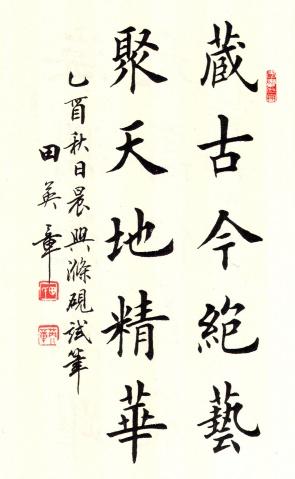 藏古今絕藝
聚天地精華
乙酉秋日晨興滌硯試筆
田英章